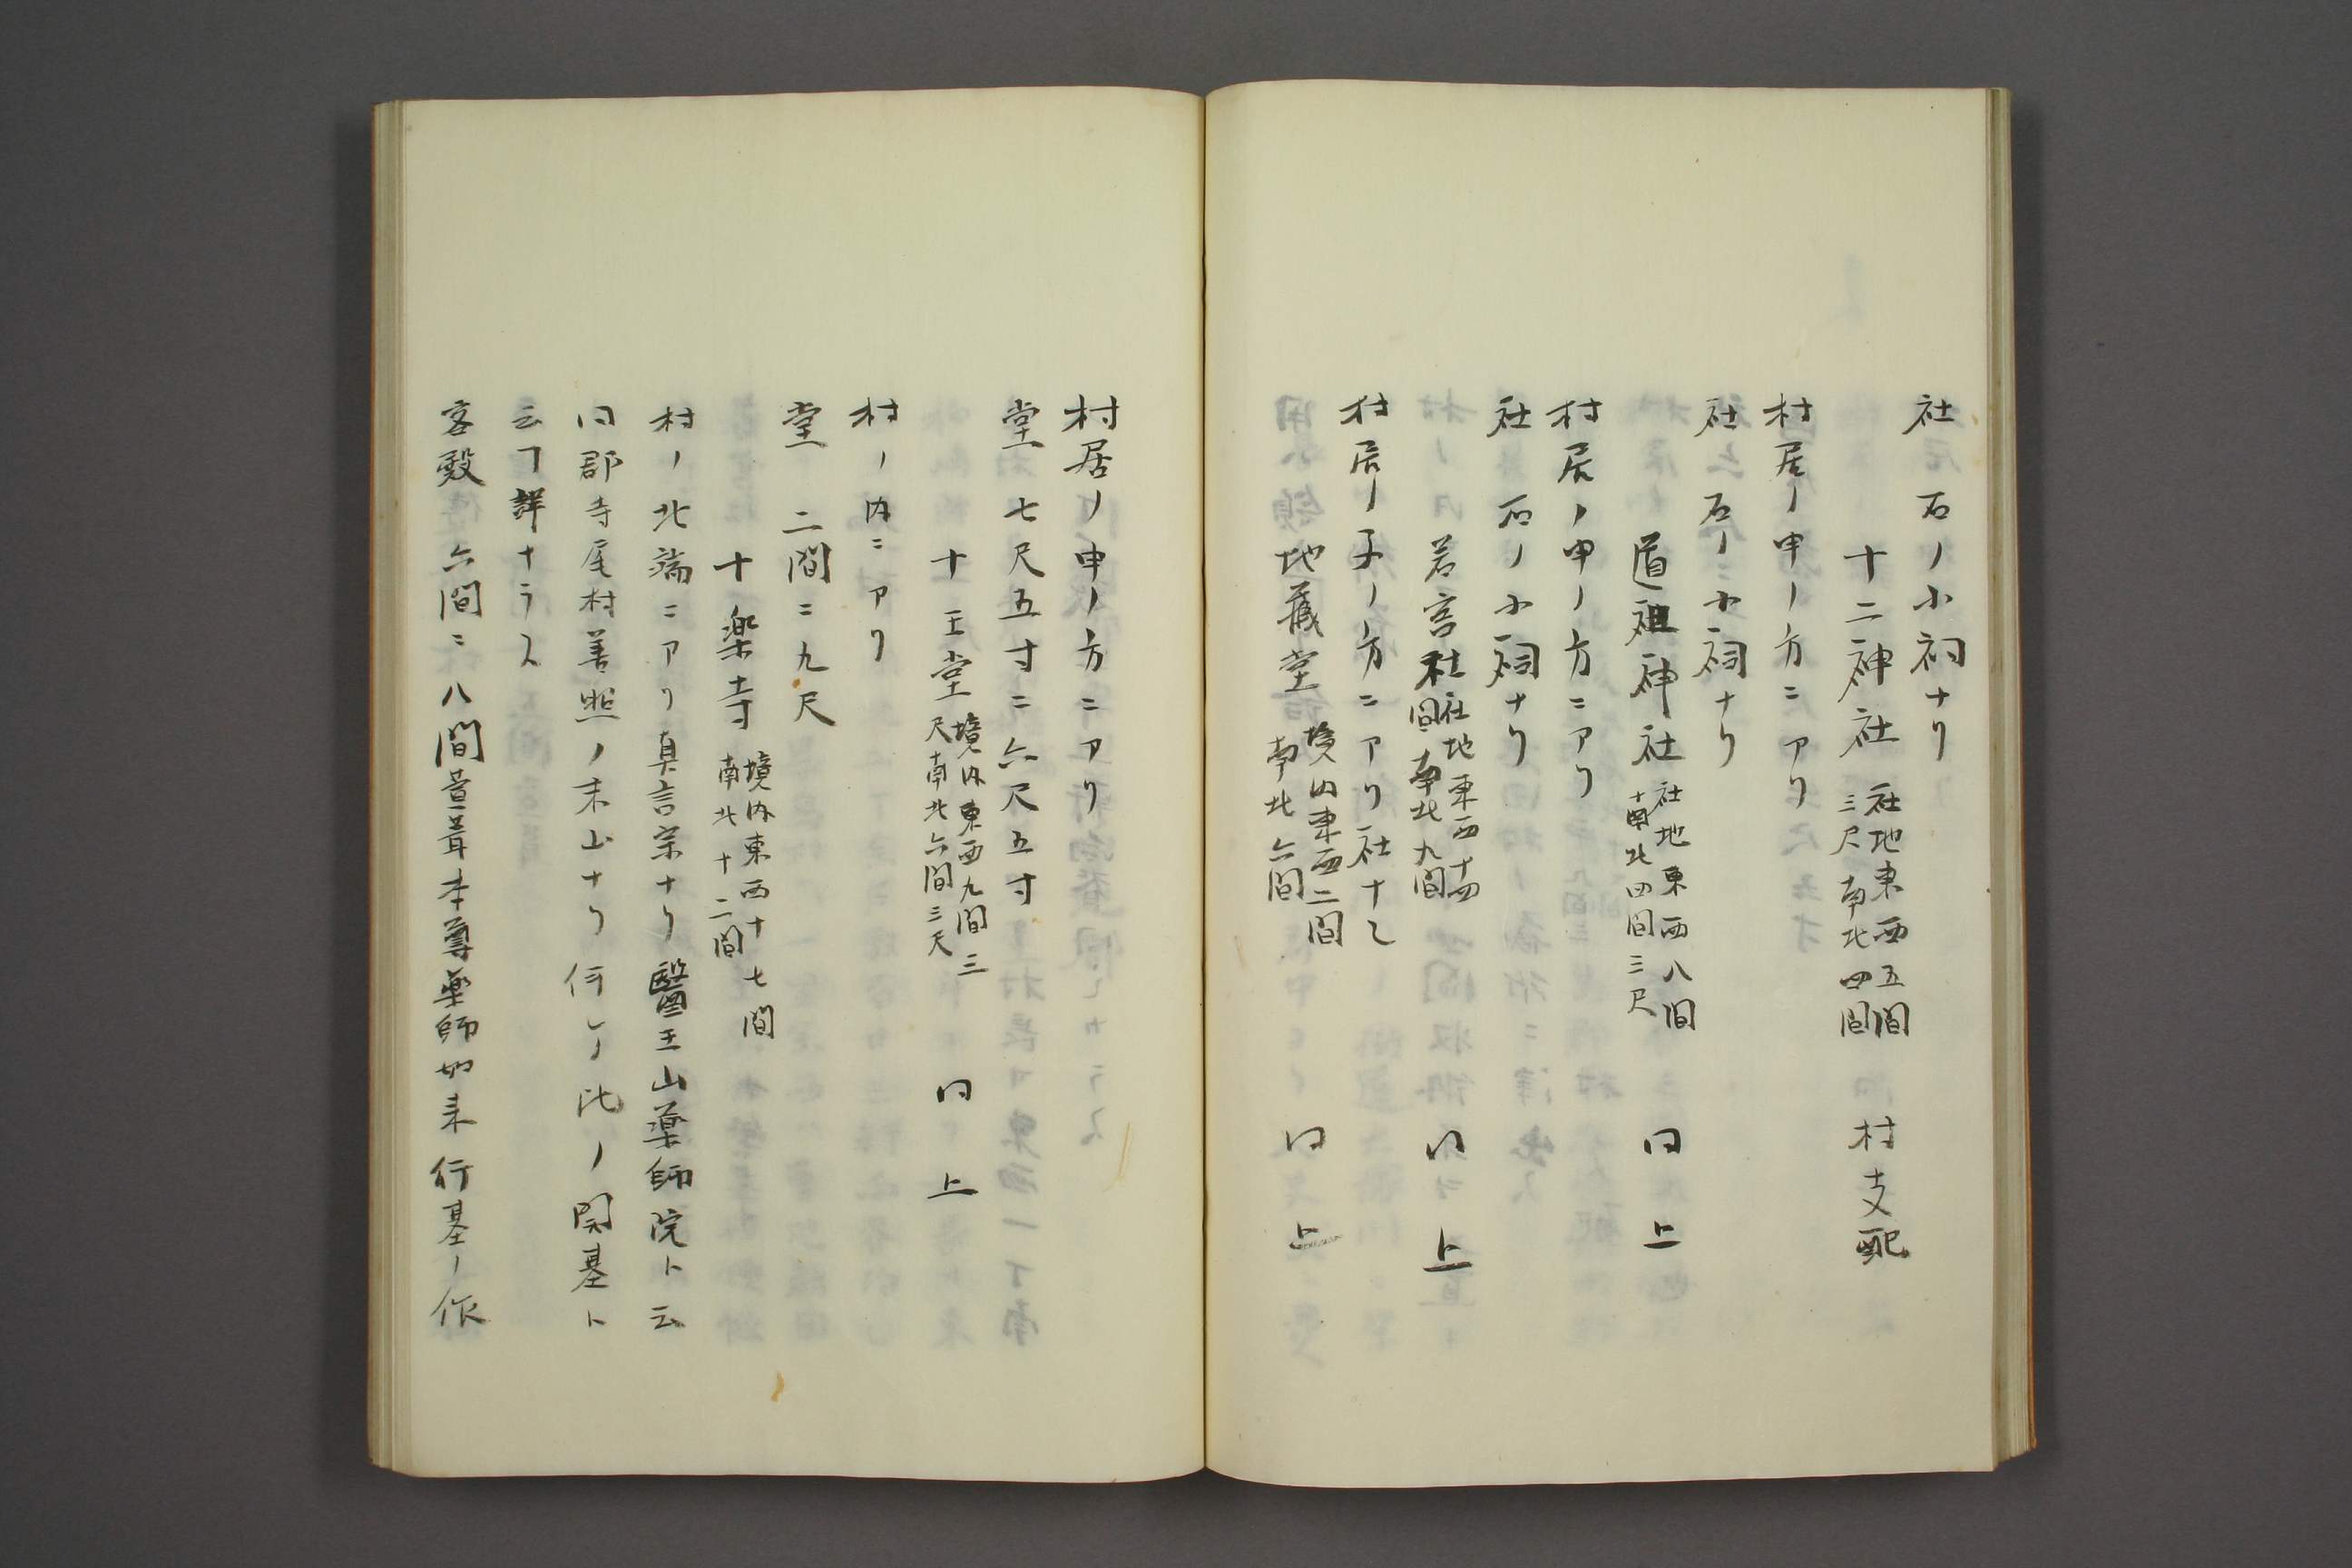 社 石ノ小祠ナリ
十二神社 社地東西五間三尺南北四間 村支配
村居ノ申ノ方ニアリ
社 石ノ小祠ナリ
道祖神社 社地東西八間南北四間三尺 同上
村居ノ申ノ方ニアリ
社 石ノ小祠ナリ
若宮社 社地東西十四間南北九間 同上
村居ノ子ノ方ニアリ社ナシ
地蔵堂 境内東西二間南北六間 同上
村居ノ申ノ方ニアリ
堂 七尺五寸ニ六尺五寸
十王堂 境内東西九間三尺南北六間三尺 同上
村ノ内ニアリ
堂 二間ニ九尺
十樂寺 境内東西十七間南北十二間
村ノ北端ニアリ真言宗ナリ醫王山藥師院ト云
同郡寺尾村善照ノ末山ナリ何レノ比ノ開基ト
云ヿ詳ナラス
客殿 六間ニ八間萱葺本尊藥師如来 行基ノ作